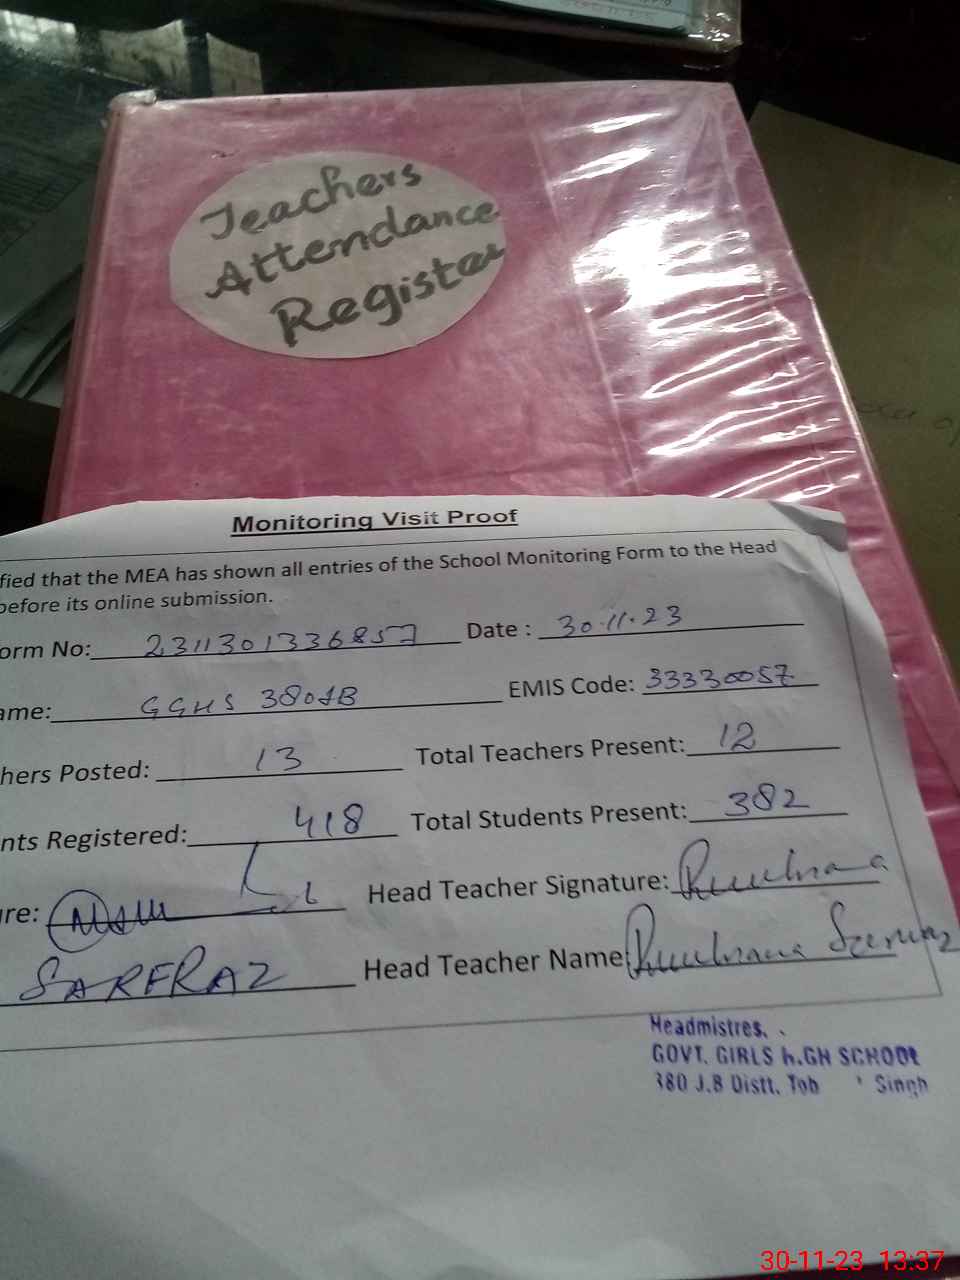 Teachers
Attendance
Register
Monitoring Visit Proof
fied that the MEA has shown all entries of the School Monitoring Form to the Head
before its online submission.
orm No: 2311301336857 Date : 30.11.23
ame: GGHS 380JB EMIS Code: 33330057
hers Posted: 13 Total Teachers Present: 12
nts Registered: 418 Total Students Present: 382
re: Head Teacher Signature:
SARFRAZ Head Teacher Name:
Headmistres.
GOVT. GIRLS HIGH SCHOOL
380 J.B Distt. Tob Singh
30-11-23 13:37